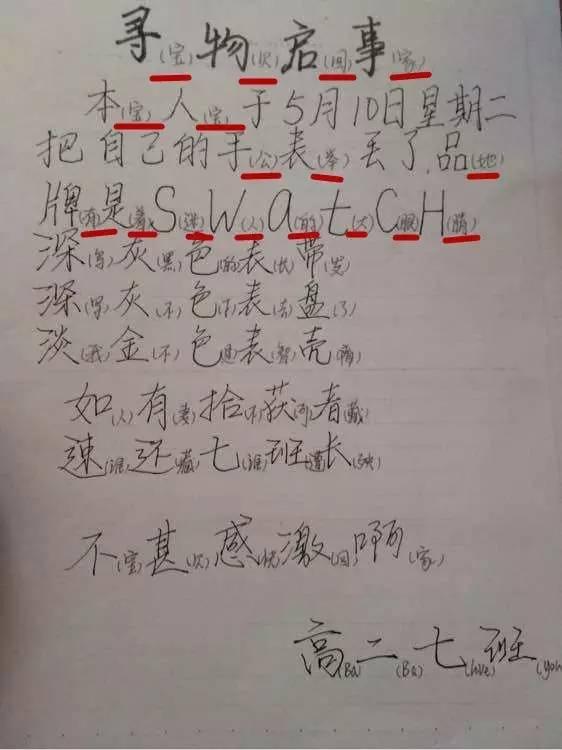 寻(宝)物(贝)启(回)事(家)
本(宝)人(宝)于5月10日星期二
把自己的手(公)表(举)丢了,品(地)
牌(有)是(着)S(迷)W(人)a(的)t(大)C(眼)H(睛)
深(乌)灰(黑)色(的)表(长)带(发)
深(写)灰(不)色(下)表(去)盘(了)
淡(我)金(不)色(是)表(智)壳(障)
如(人)有(妻)拾(不)获(可)者(藏)
速(谁)还(藏)七(谁)班(遭)长(殃)
不(宝)甚(贝)感(快)激(回)啊(家)
高(Ba)二(Ba)七(love)班(you